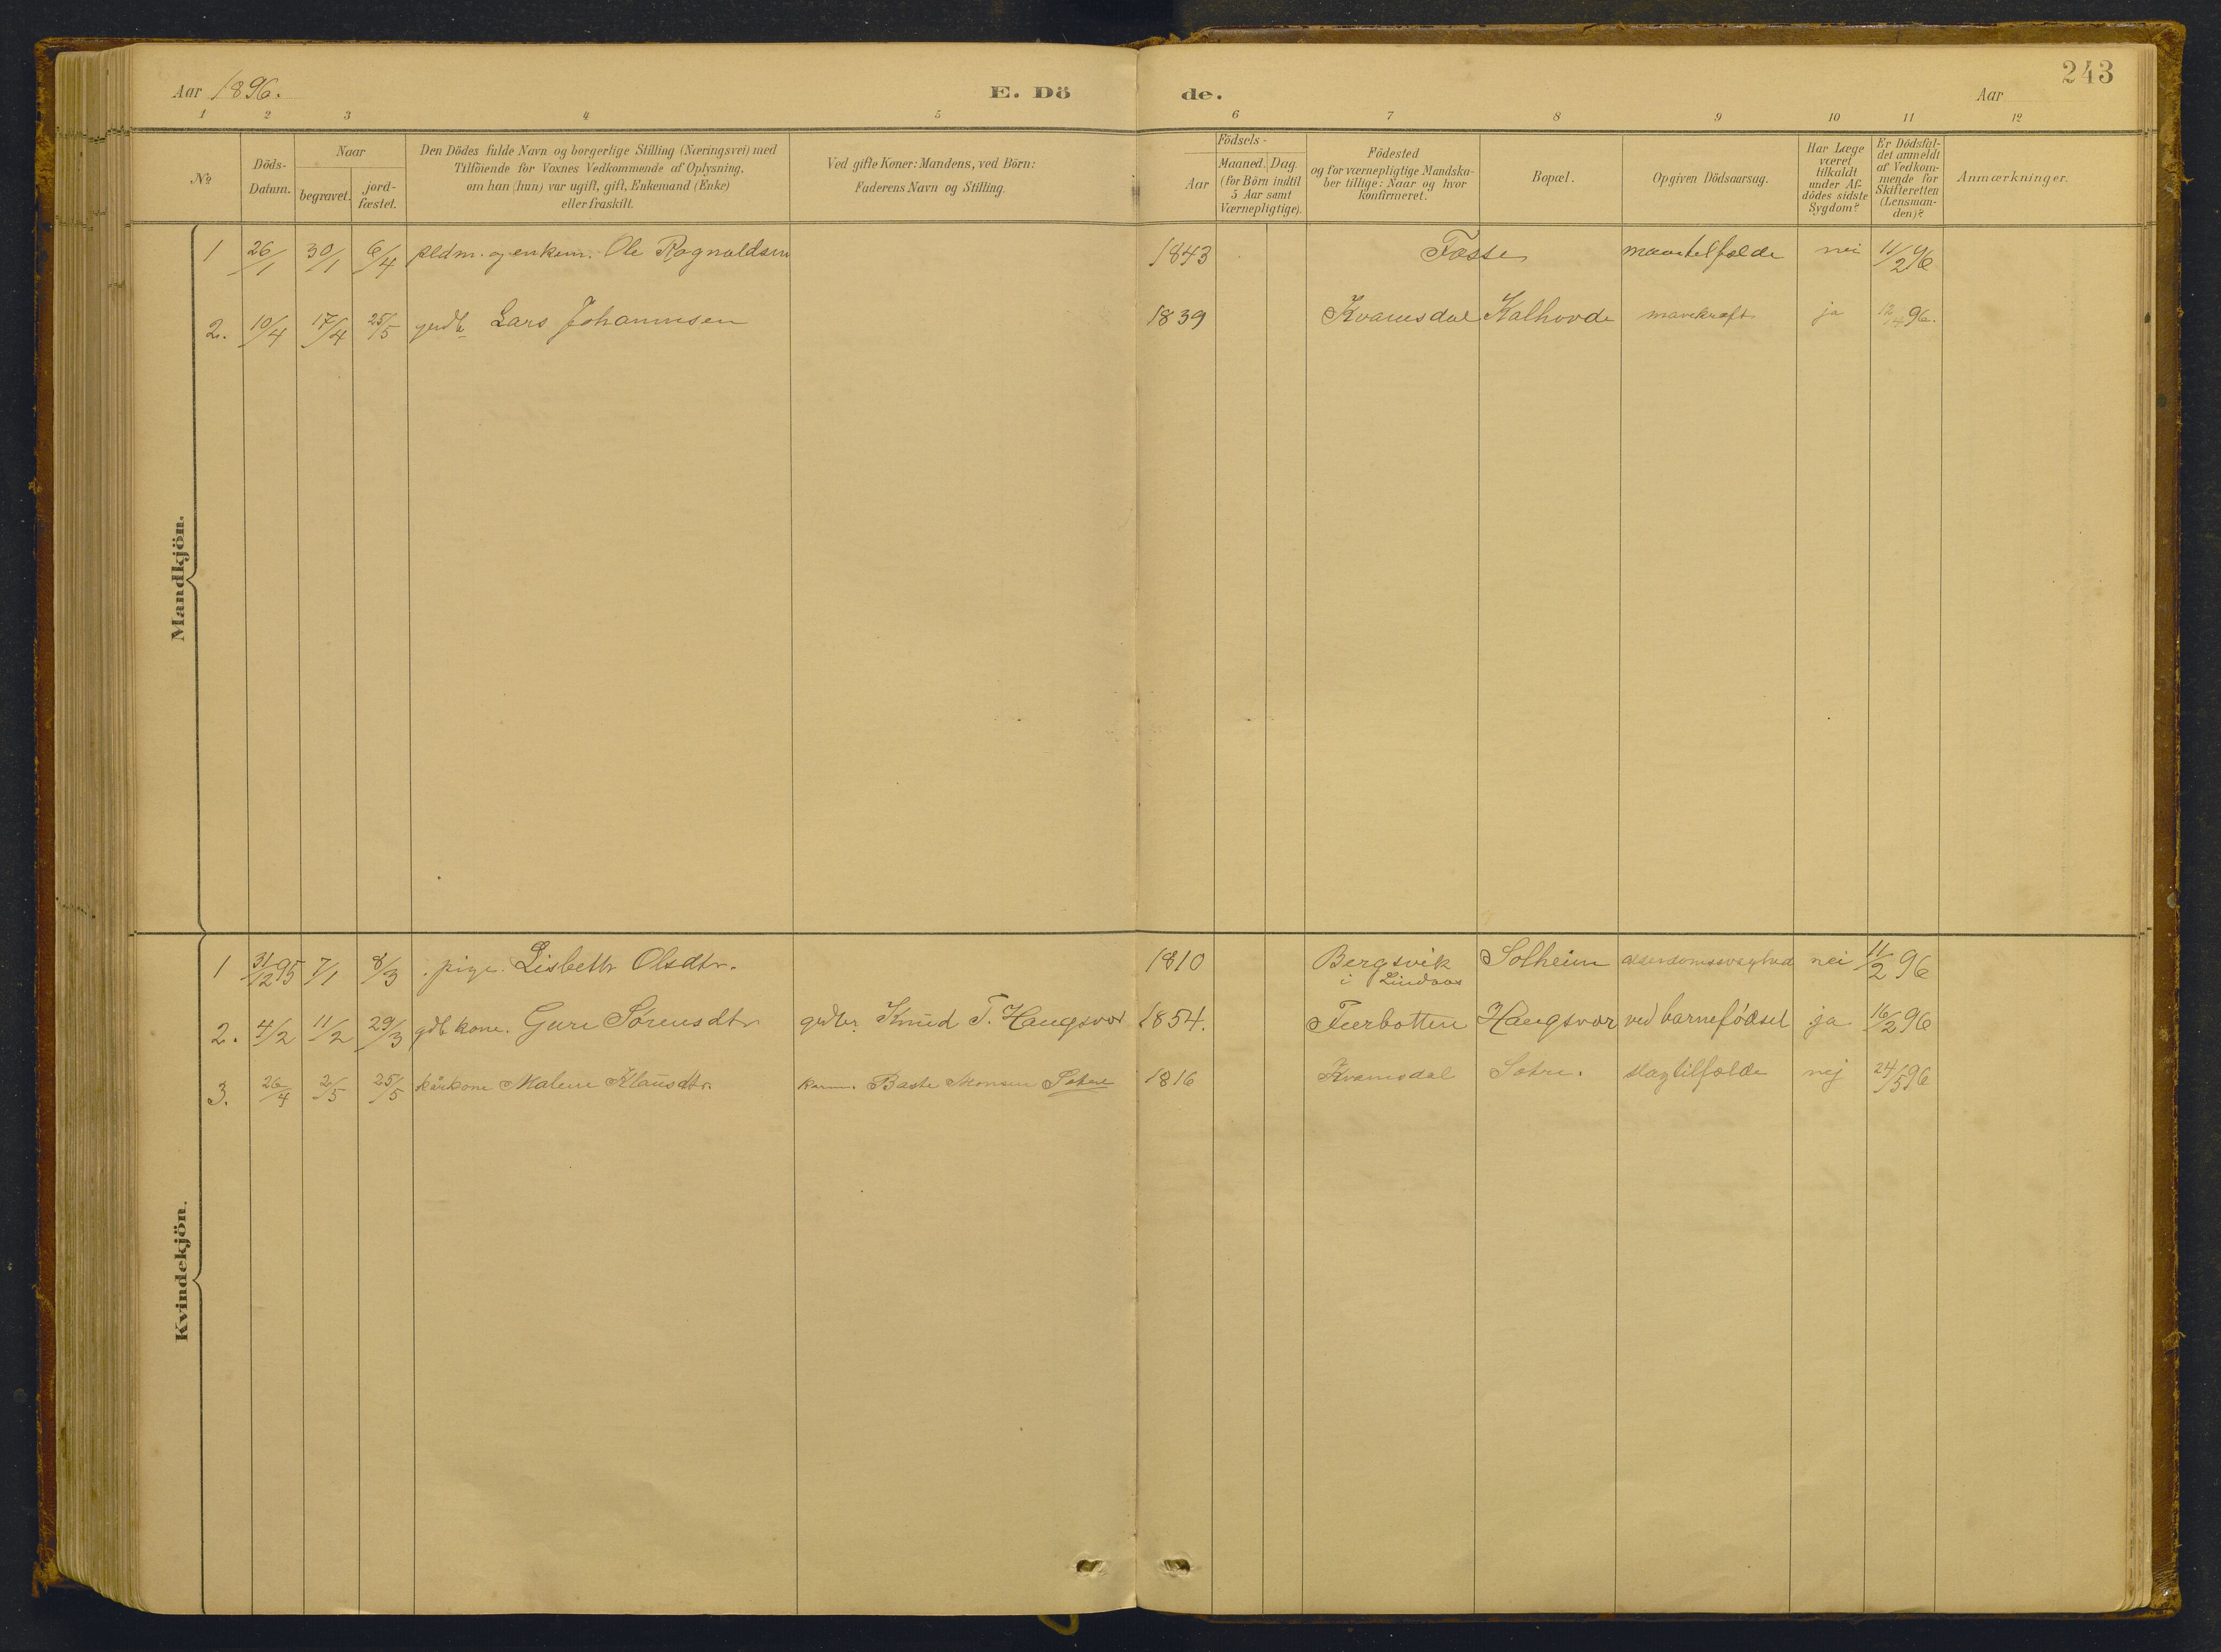 243
Aar 1896.
E. Dö
de.
Aar
1 2 3 4 5 6 7 8 9 10 11 12
No
Döds-
Datum.
Naar
begravet.
jord-
fæstet.
Den Dödes fulde Navn og borgerlige Stilling (Næringsvei) med
Tilföiende for Voxnes Vedkommende af Oplysning,
om han (hun) var ugift, gift, Enkemand (Enke)
eller fraskilt.
Ved gifte Koner: Mandens, ved Börn:
Faderens Navn og Stilling.
Födsels-
Aar
Maaned. Dag.
(for Börn indtil
5 Aar samt
Værnepligtige).
Födested
og for værnepligtige Mandska-
ber tillige: Naar og hvor
konfirmeret.
Bopæl.
Opgiven Dödsaarsag.
Har Læge
været
tilkaldt
under Af-
dödes sidste
Sygdom?
Er Dödsfal-
det anmeldt
af Vedkom-
mende for
Skifteretten
(Lensman-
den)?
Anmærkninger.
Mandkjön.
1 26/1 30/1 6/4 og enkem. Ole Ragnaldsen 1843 Fosse nei 11/2 96
2. 10/4 17/4 25/5 grdb. Lars Johannesen 1839 Kvamsdal Kalhovde mavekræft ja 12/4 96.
Kvindekjön.
1 31/12 95 7/1 8/3 pige. Lisbeth Olsdtr. 1810 Bergsvik Solheim alderdomssvaghed nei 11/2 96
i Lindaas
2. 4/2 11/2 29/3 gdb. kone. Guri Sörensdtr grdbr. Knud T. Haugsvær 1854. Haugsvær ved barnefödsel ja 16/2 96
3. 26/4 2/5 25/5 kårkone Malene Klausdtr. Baste Monsen Sætre 1816 Kvamsdal Sætre. slagtilfælde nej 24/5 96